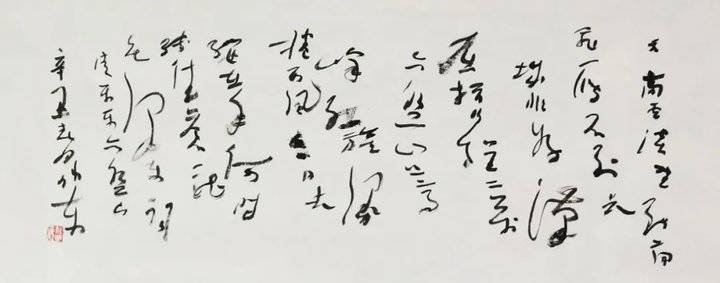 天高云淡望断南
飞雁不到长
城非好汉
屈指行程二万
六盘山上高
峰红旗漫
卷西风今日长
缨在手何时
缚住苍龙
毛泽东词
清平乐六盘山
辛丑春